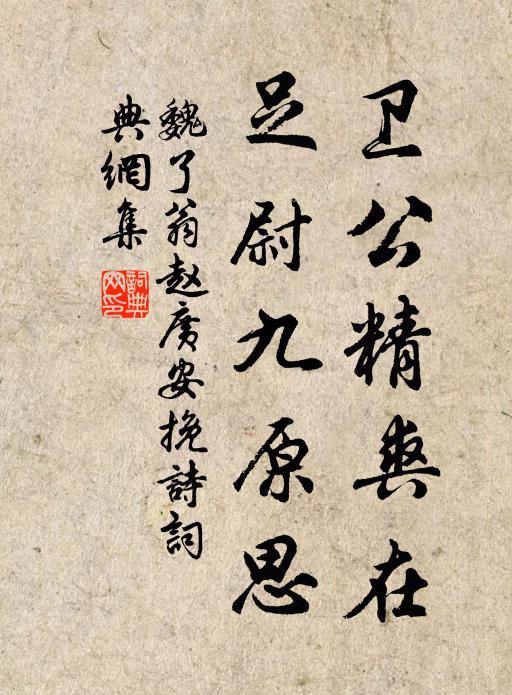 卫公精爽在
足尉九原思
魏了翁赵广安挽詩詞
典網集
詞典网印